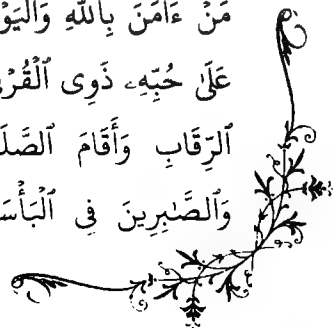 مَنْ ءَامَنَ بِاللَّهِ وَالْيَوْ
عَلَىٰ حُبِّهِۦ ذَوِى الْقُرْ
ٱلرِّقَابِ وَأَقَامَ ٱلصَّلَ
وَٱلصَّٰبِرِينَ فِى ٱلْبَأْسَ